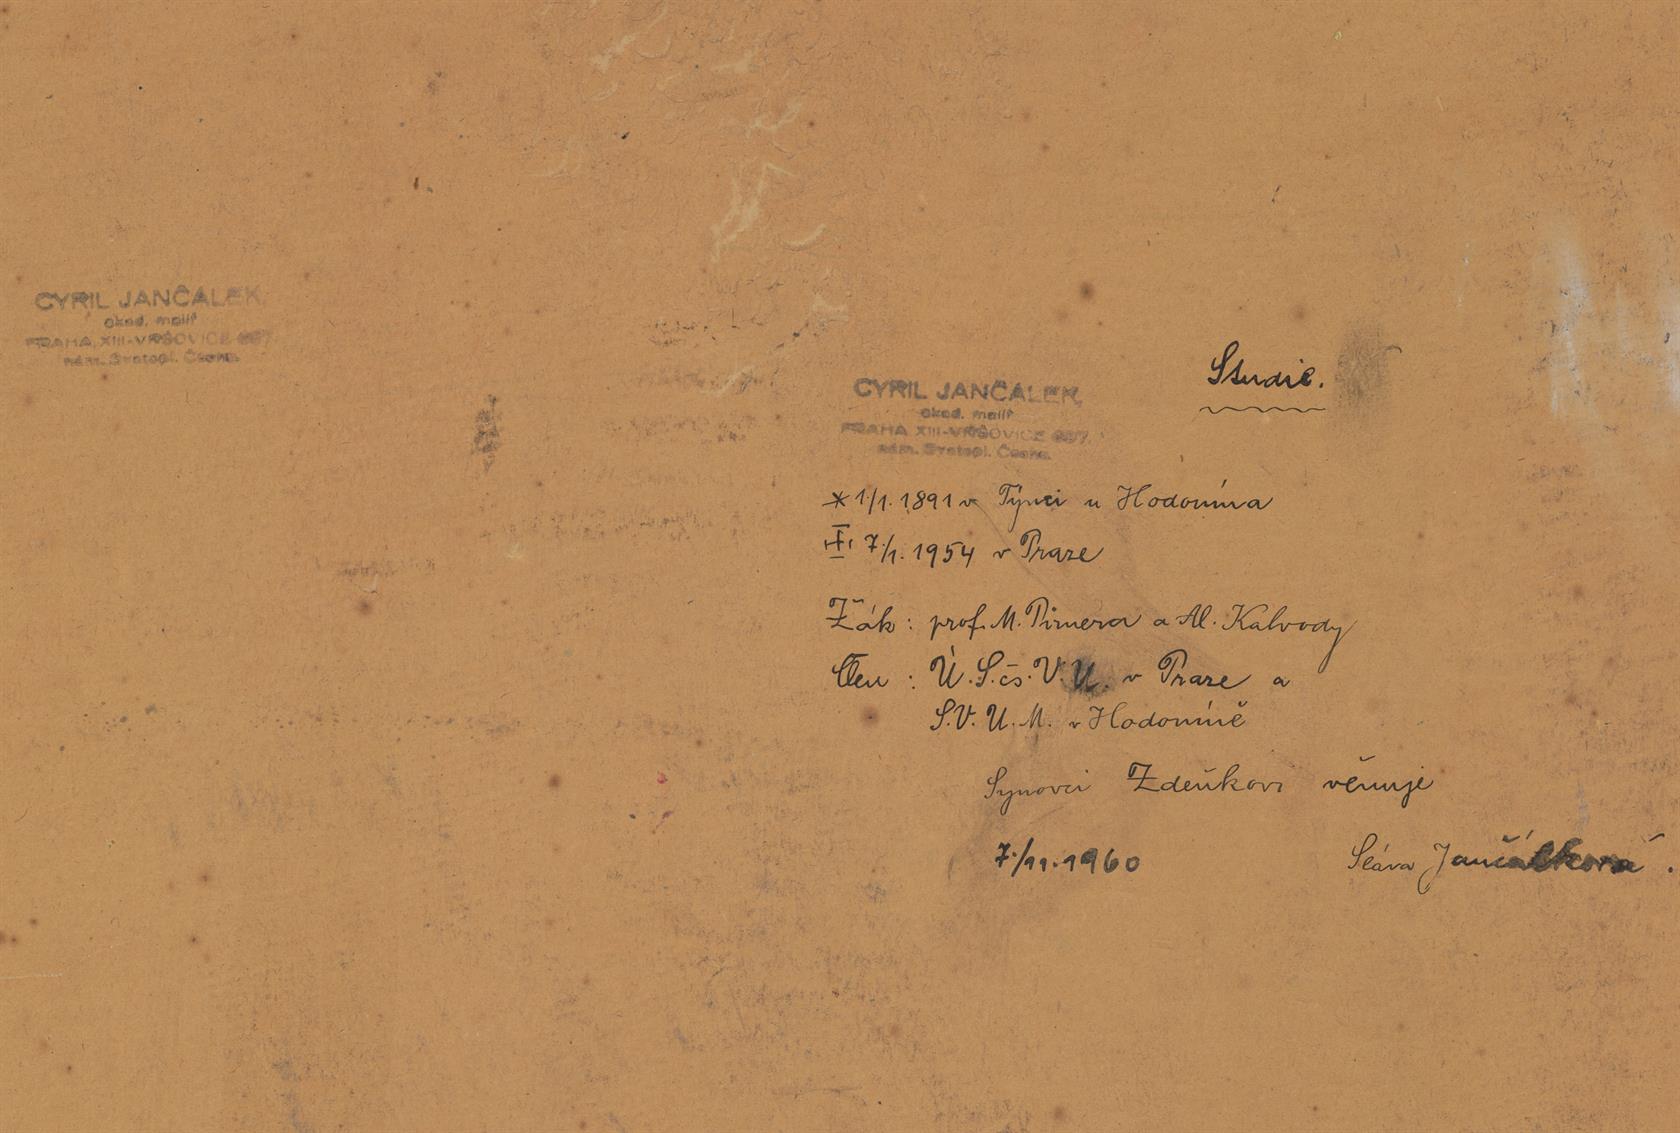 CYRIL JANČALEK,
akad. malíř
PRAHA XIII-VRŠOVICE 
nám. Svatopl. Čecha.
Studie.
CYRIL JANČALEK,
akad. malíř
PRAHA XIII-VRŠOVICE 
nám. Svatopl. Čecha.
* 1/1. 1891 v Týnci u Hodonína
7/1. 1954 v Praze
Žák: prof. M. Pirnera a Al. Kalvody
Člen: Ú.S.čs.V.U. v Praze a
S.V.U.M. v Hodoníně
Synovci Zdeňkovi věnuje
7./11.1960 Sláva Jančálková.